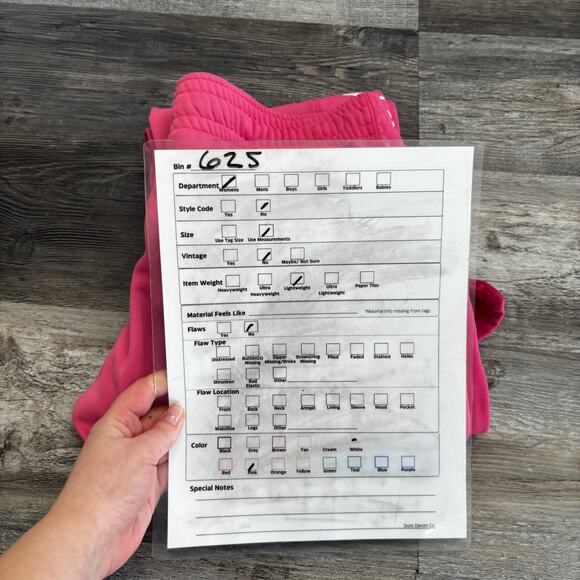 Bin # 625
Department Womens Mens Boys Girls Toddlers Babies
Style Code Yes No
Size Use Tag Size Use Measurements
Vintage Yes No Maybe/ Not Sure
Item Weight Heavyweight Ultra Heavyweight Lightweight Ultra Lightweight Paper Thin
Material Feels Like *Material info missing from tags
Flaws Yes No
Flaw Type
Distressed Button(s) Missing Zipper Missing/Broke Drawstring Missing Piled Faded Stained Holes
Shrunken Bad Elastic Other
Flaw Location
Front Back Neck Armpit Lining Sleeve Hood Pocket
Waistline Legs Other
Color Black Gray Brown Tan Cream White
Red Pink Orange Yellow Green Teal Blue Purple
Special Notes
Dom Denim Co